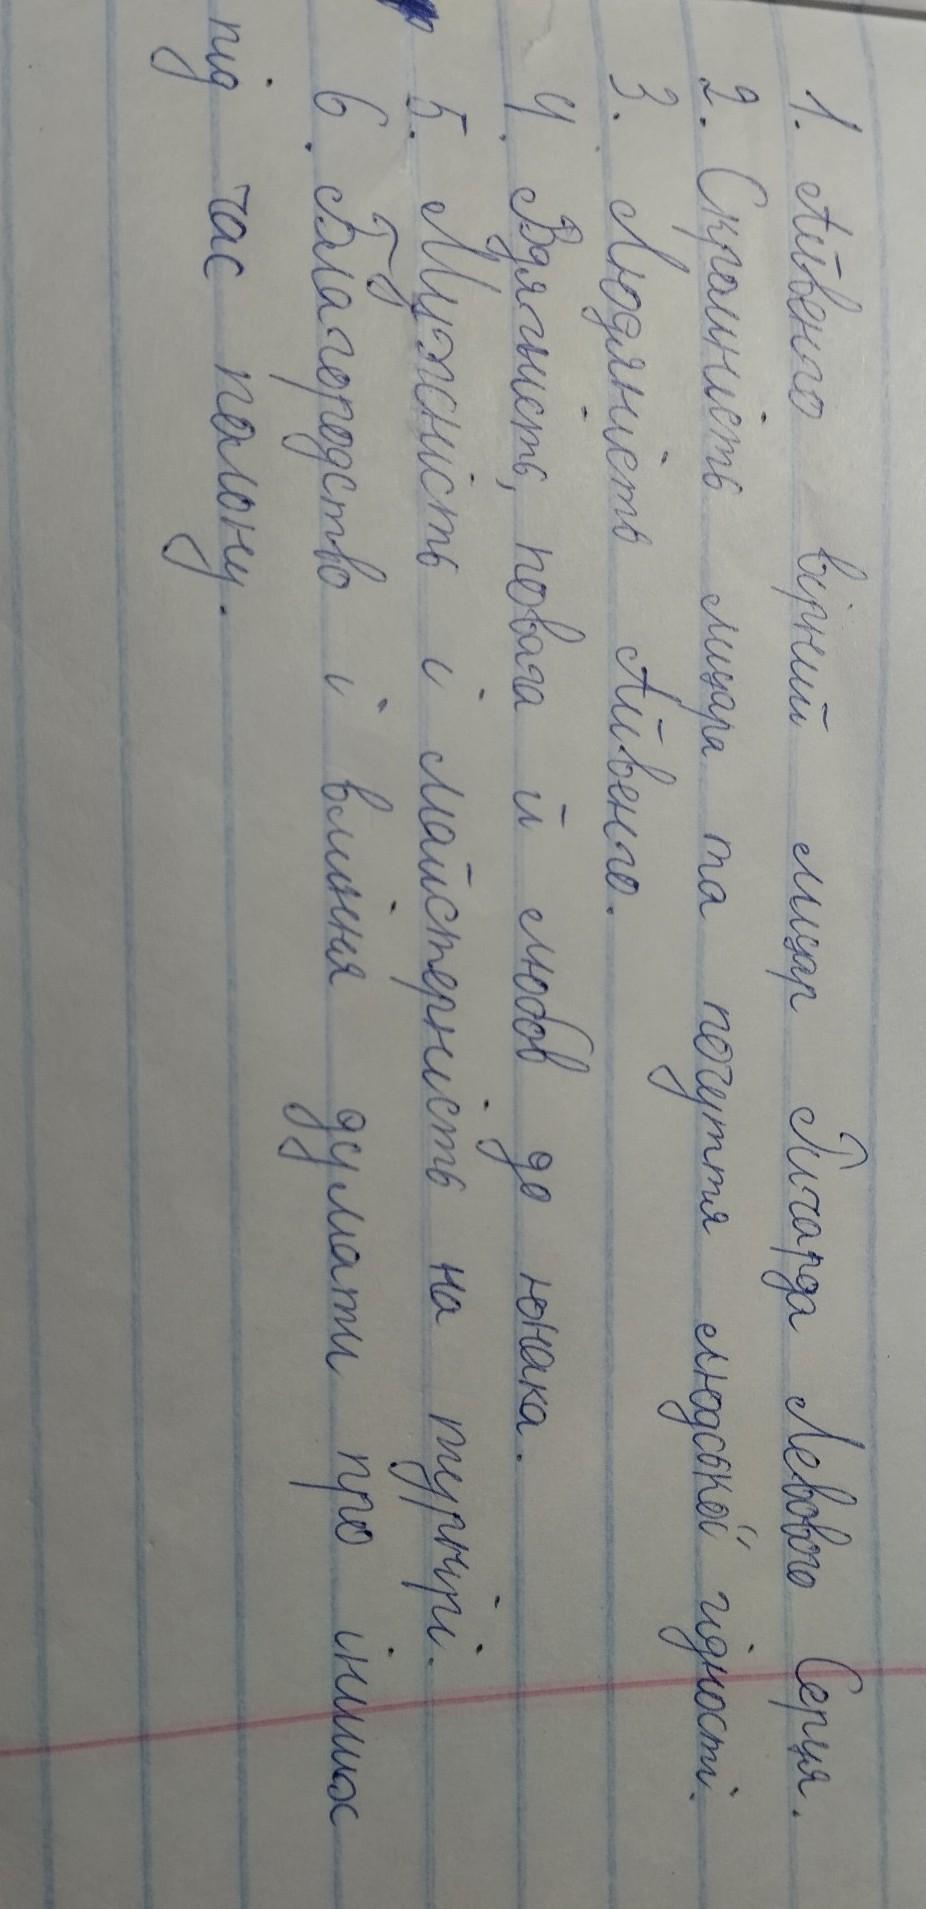 1. Айвенго вірний лицар Річарда Левового Серця.
2. Скромність лицаря та почуття людської гідності.
3. Людяність Айвенго.
4. Вдячність, повага й любов до юнака.
5. Мужність і майстерність на турнірі.
6. Благородство і вміння думати про інших
під час полону.